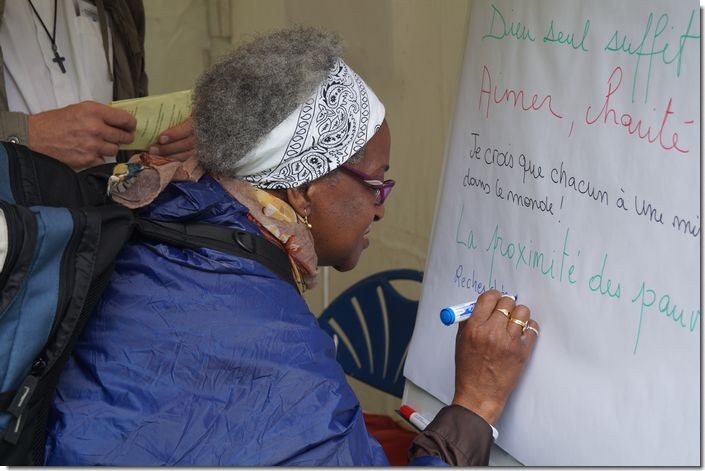 Dieu seul suffit
Aimer, charité
Je crois que chacun à une mi
dans le monde!
La proximité des pauv